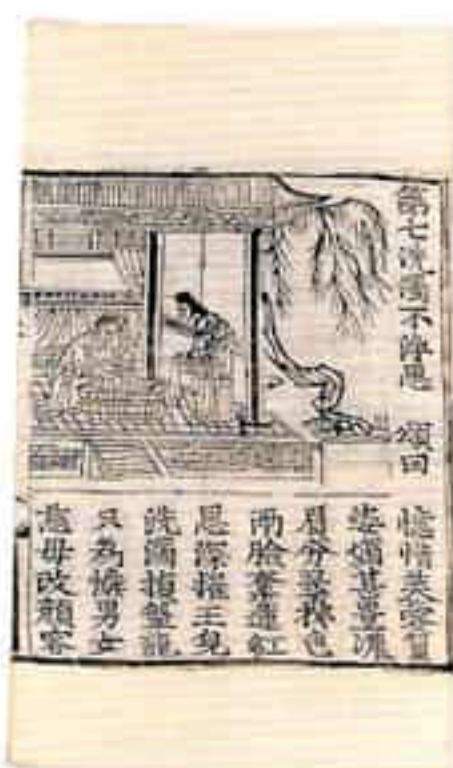 第七洗濯不淨恩 頌曰
憶惜芙蓉質
姿媚甚豊濃
眉分翠柳色
兩臉奪蓮紅
恩深摧玉皃
洗濯損盤龍
只為憐男女
慈母改顔容